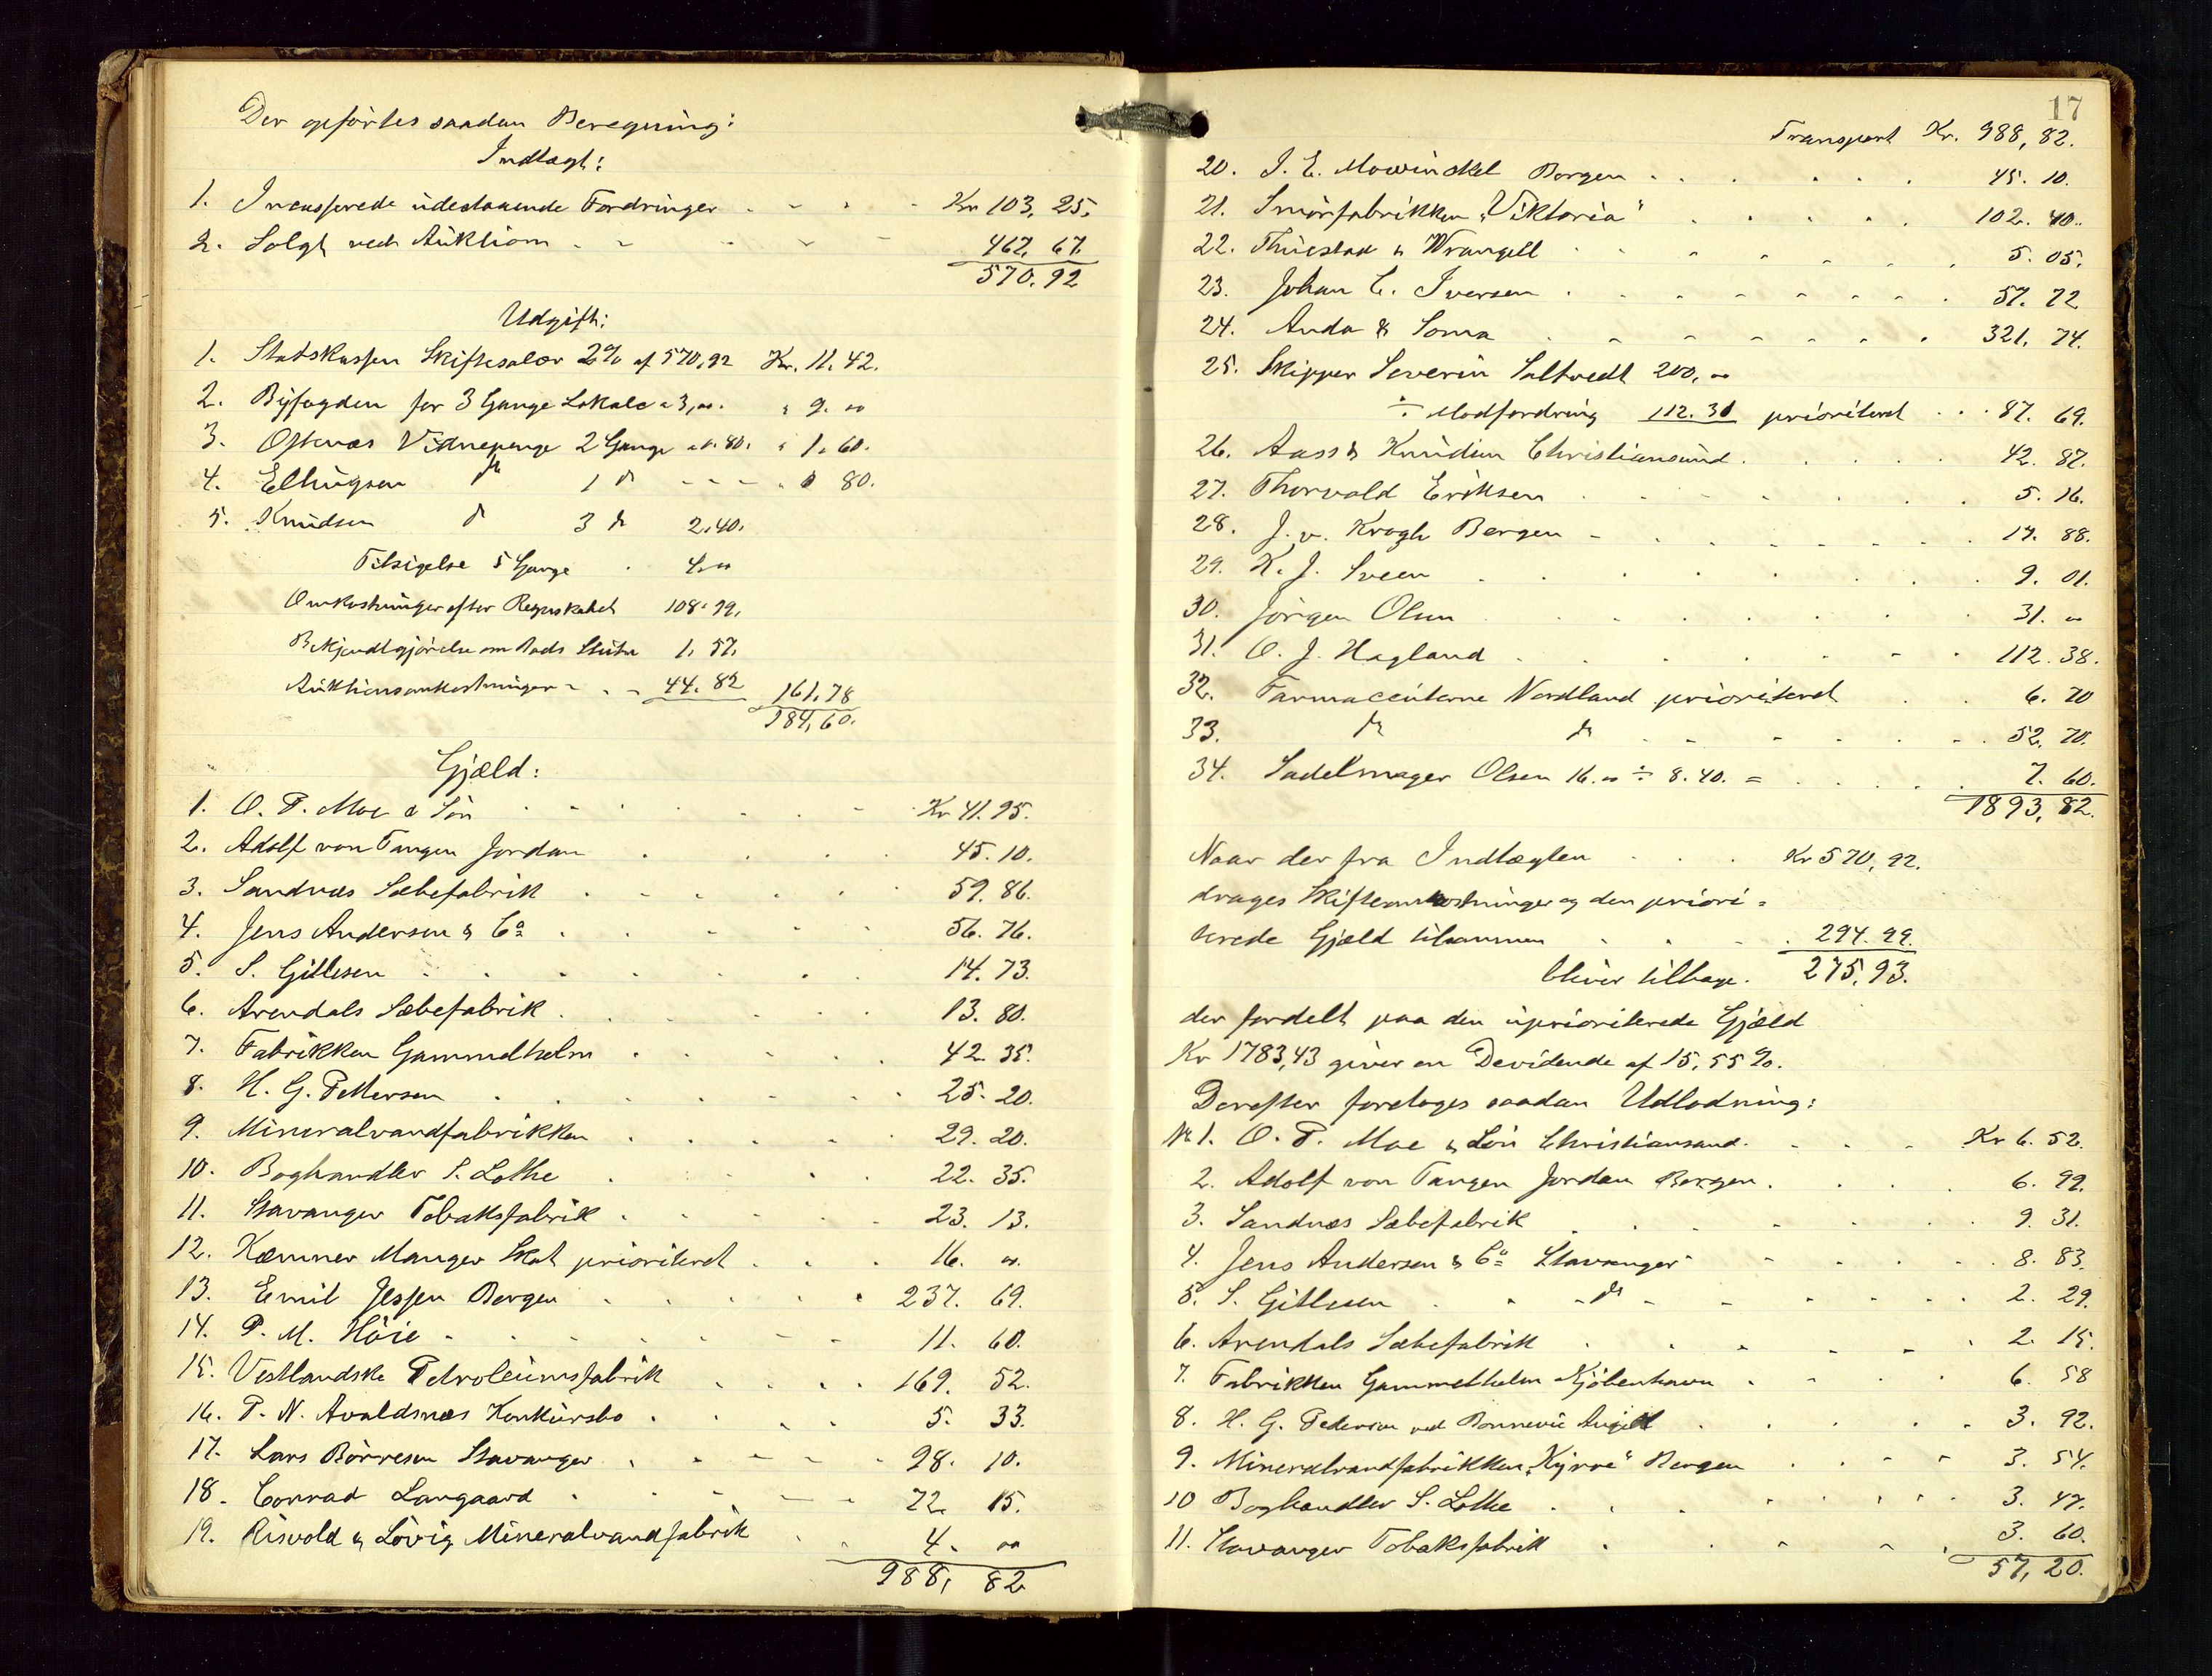 Der opførtes saadan Beregning:
Indtægt:
1. Incasserede udestaaende Fordringer Kr 103,25.
2. Solgt ved Auktion 467,67.
570.92
Udgift:
1. Statskassen Skiftesalær 2% af 570,92 Kr. 11.42.
2. Byfogden for 3 Gange Lokale a 3,00. " 9. 00
3. Ofstnæs Vidnepenge 2 Gange a 0.80. " 1.60.
4. Ellingsen do 1 do " 0 80.
5. Knudsen do 3 do 2.40.
Tilsigelse 5 Gange 4.00
Omkostninger efter Regnskabet 108.99.
Bekjendtgjørelse om Bods Slutn 1.57.
Auktionsomkostninger 44.82 161.78
184,60.
Gjæld:
1. O. P. Moe & Søn Kr 41.95.
2. Adolf von Tangen Jordan 45.10.
3. Sandnæs Sæbefabrik 59.86.
4. Jens Andersen & Co 56.76.
5. S. Gitlesen 14.73.
6. Arendals Sæbefabrik 13.80.
7. Fabrikken Gammelholm 42.35.
8. H. G. Pettersen 25.20.
9. Mineralvandfabrikken 29.20.
10. Boghandler S. Lothe 22.35.
11. Stavanger Tobaksfabrik 23.13.
12. Kæmner Manger Skat prioriteret 16. 00.
13. Emil Jessen Bergen 237.69.
14. P. M. Høie 11.60.
15. Vestlandske Petroleumsfabrik 169.52.
16. P. N. Avaldsnæs Konkursbo 5.33.
17. Lars Børresen Stavanger 98.10.
18. Conrad Langaard 72.15.
19. Risvold & Løvig Mineralvandfabrik 4. 00
988,82
17
Transport Kr. 988,82.
20. J. E. Mowinckel Bergen 45.10.
21. Smørfabrikken "Viktoria" 102.40.
22. Thiestad & Wrangell 5.05.
23. Johan C. Iversen 57.72
24. Anda & Soma 321.74.
25. Skipper Severin Saltvedt 200,00
÷ Modfordring 112.31 prioriteret 87.69.
26. Aass & Knudsen Christiansund 42.87.
27. Thorvald Eriksen 5.16.
28. J. v. Krogh Bergen 17.88.
29. K. J. Sveen 9.01.
30. Jørgen Olsen 31. 00
31. O. J. Hagland 112.38.
32. Farmaceuterne Nordland prioriteret 6.70
33. do do 52.70.
34. Sadelmager Olsen 16.00 ÷ 8.40. = 7.60.
1893,82.
Naar der fra Indtægten Kr 570,92.
drages Skifteomkostninger og den priori=
terede Gjæld tilsammen 294.99.
bliver tilbage 275,93.
der fordelt paa den uprioriterede Gjæld
Kr 1783,43 giver en Devidende af 15,55%.
Derefter foretoges saadan Udlodning:
No 1. O. P. Moe & Søn Christiansand. Kr 6.52.
2. Adolf von Tangen Jordan Bergen. 6.99.
3. Sandnæs Sæbefabrik 9.31.
4. Jens Andersen & Co Stavanger 8.83.
5. S. Gitlesen do 2.29.
6. Arendals Sæbefabrik 2.15.
7. Fabrikken Gammelholm Kjøbenhavn 6.58
8. H. G. Pedersen ved Bonnevie Angell 3.92.
9. Mineralvandfabrikken "Kyrre" Bergen 3.54.
10 Boghandler S. Lothe 3.47.
11. Stavanger Tobaksfabrik 3.60.
57,20.